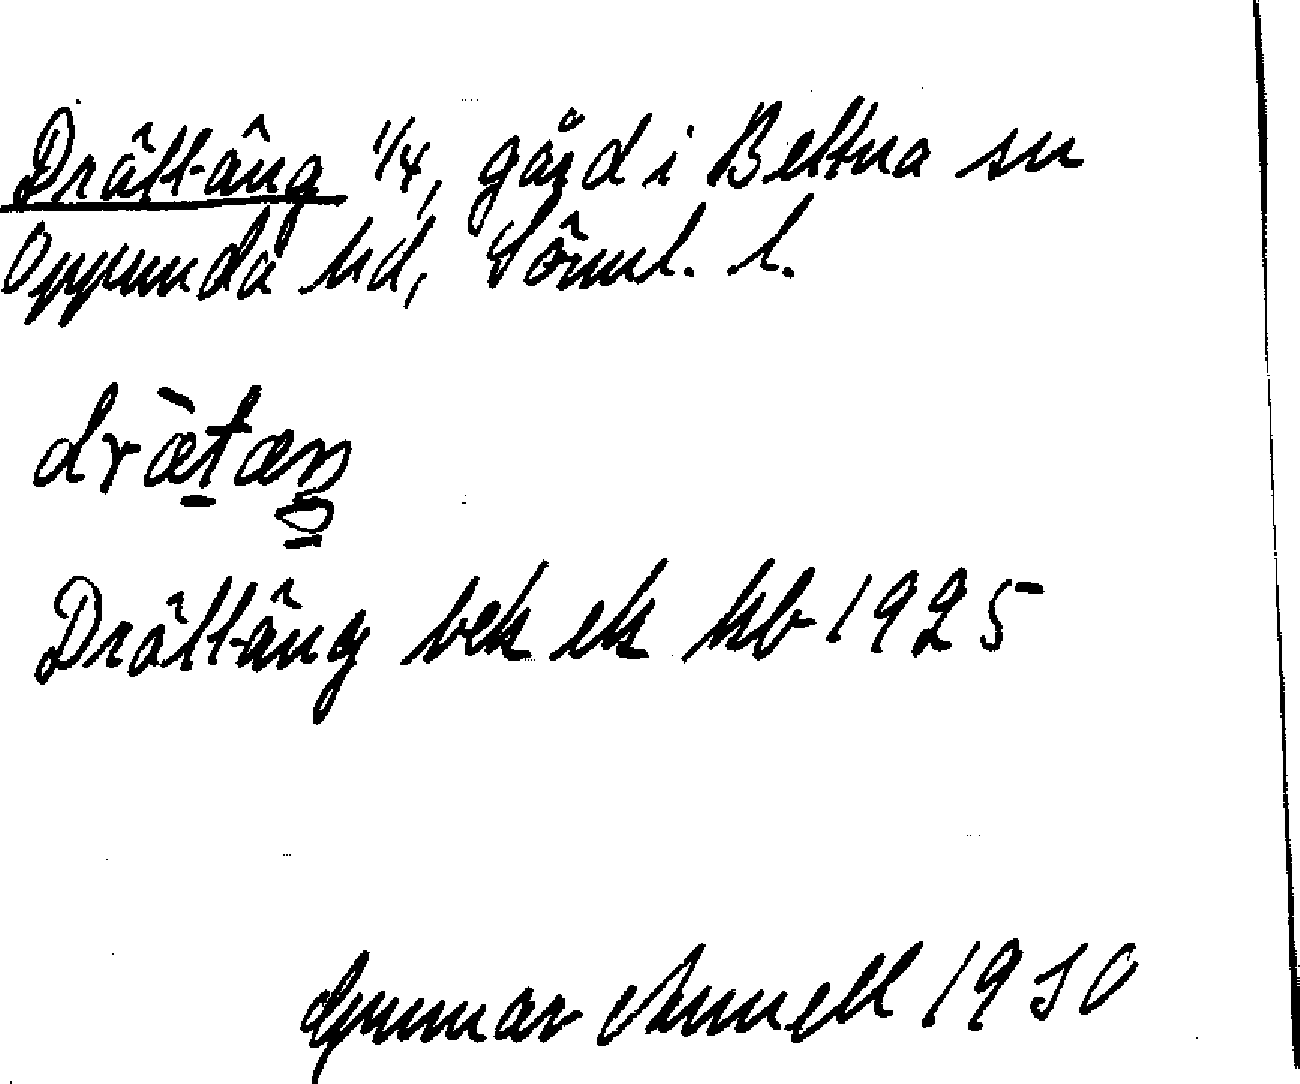 Drättäng 1/4, gård i Bettna sn
Oppunda hd, Sörml. l.
dràtæŋ
Drättäng bek ek kb 1925
Gunnar Annell 1930